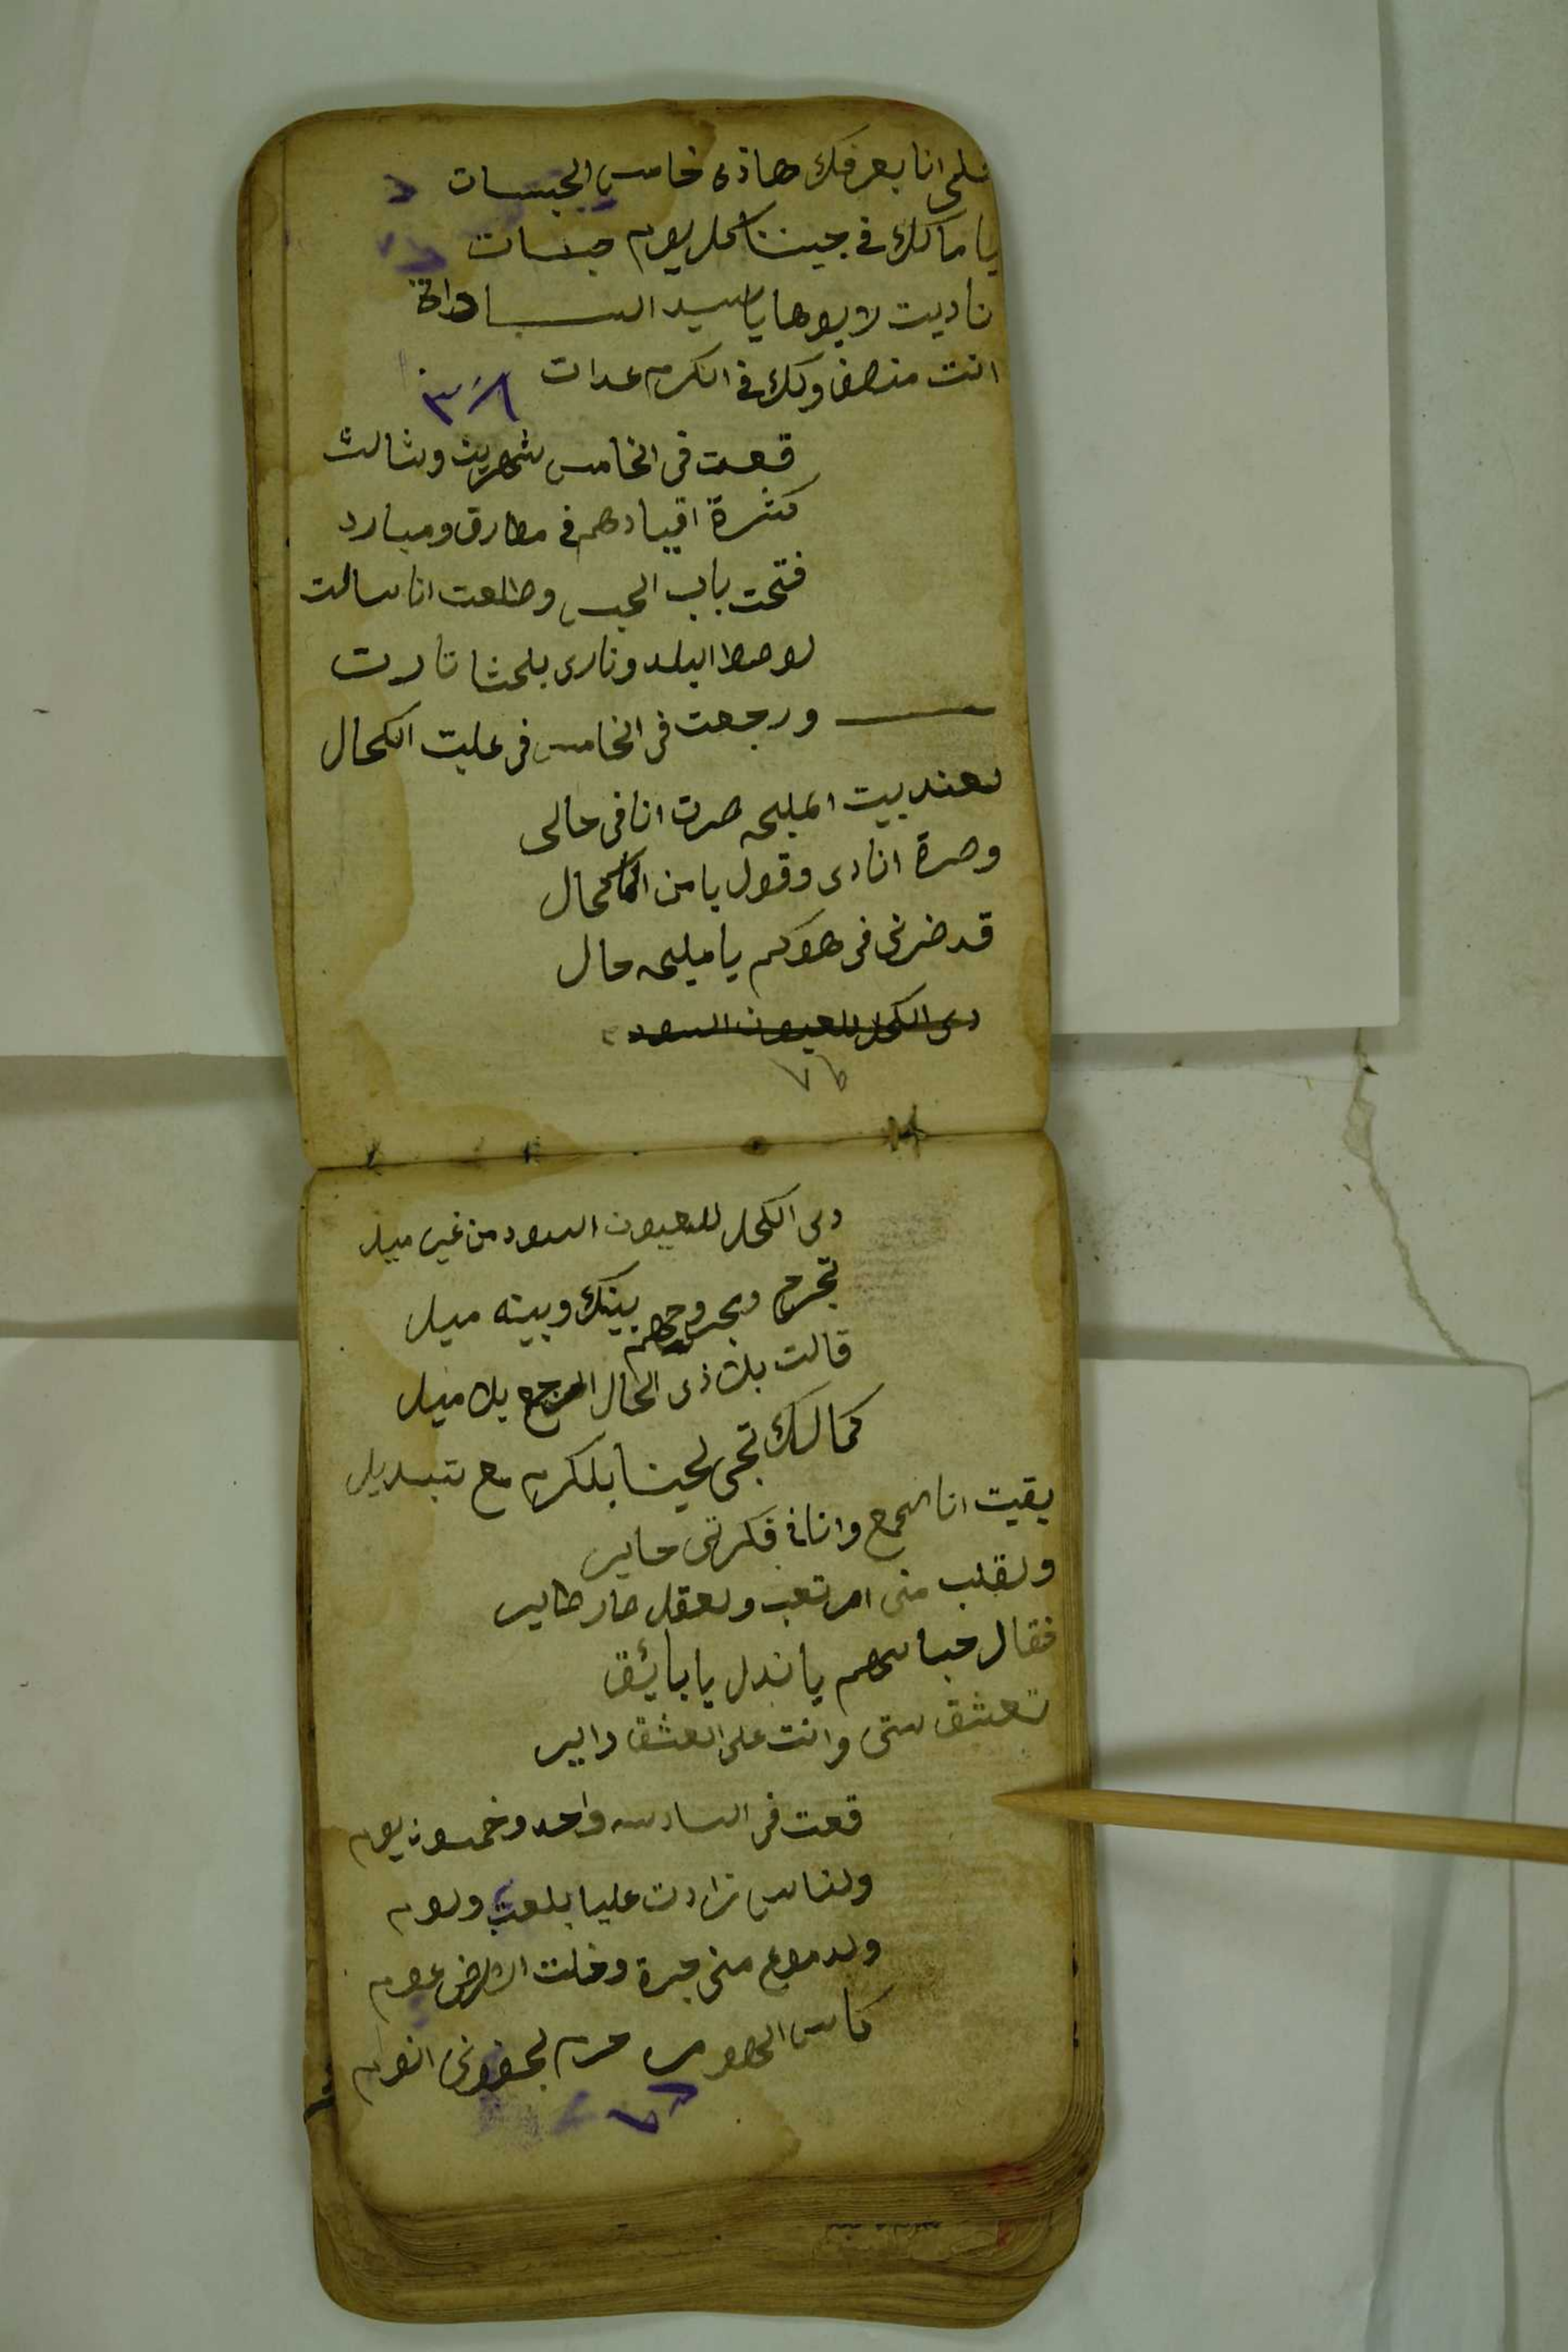 قلى انا بعرفك هاذى خامس الحبسات
يا مالك فى حيننا كل يوم حبسات
ناديت لابوها يا سيد الساداة
انت منصف ولك فى الكرم عدات
٣٨
قعت فى الخامس شهرين وثالث
كثرة اقيادهم فى مطارق ومبارد
فتحت باب الحبس وطلعت انا سالت
لوصط البلد ونارى بلحشا نارت
ورجعت فى الخامس فى عليت الكحال
لعند بيت المليحه صرت انا فى حالى
وصرة انادى وقول يا من
قد ضرنى فى هوكم يا مليحه حال
دى الكحل للعيون السود
٧٦
دى الكحل للعيون السود من غير ميل
تجرح ويجروحهم بينك وبينه ميل
قالت بلاذى الحال ارجع بلا ميل
كمالك تجى لحينا بلكرم مع تبديل
بقيت انا اسمع وانا فى فكرتى حاير
ولقلب منى امرتعب ولعقل صار طاير
فقال حباسهم يا ندل يا بائق
تعشق ستى وانت على العشق داير
قعت فى السادسه واحد وخمسون يوم
ولناس زادت عليا بلعتب ولوم
ولدموع منى جرة وخلت الارض عوم
كاس الهوى حرم لجفونى النوم